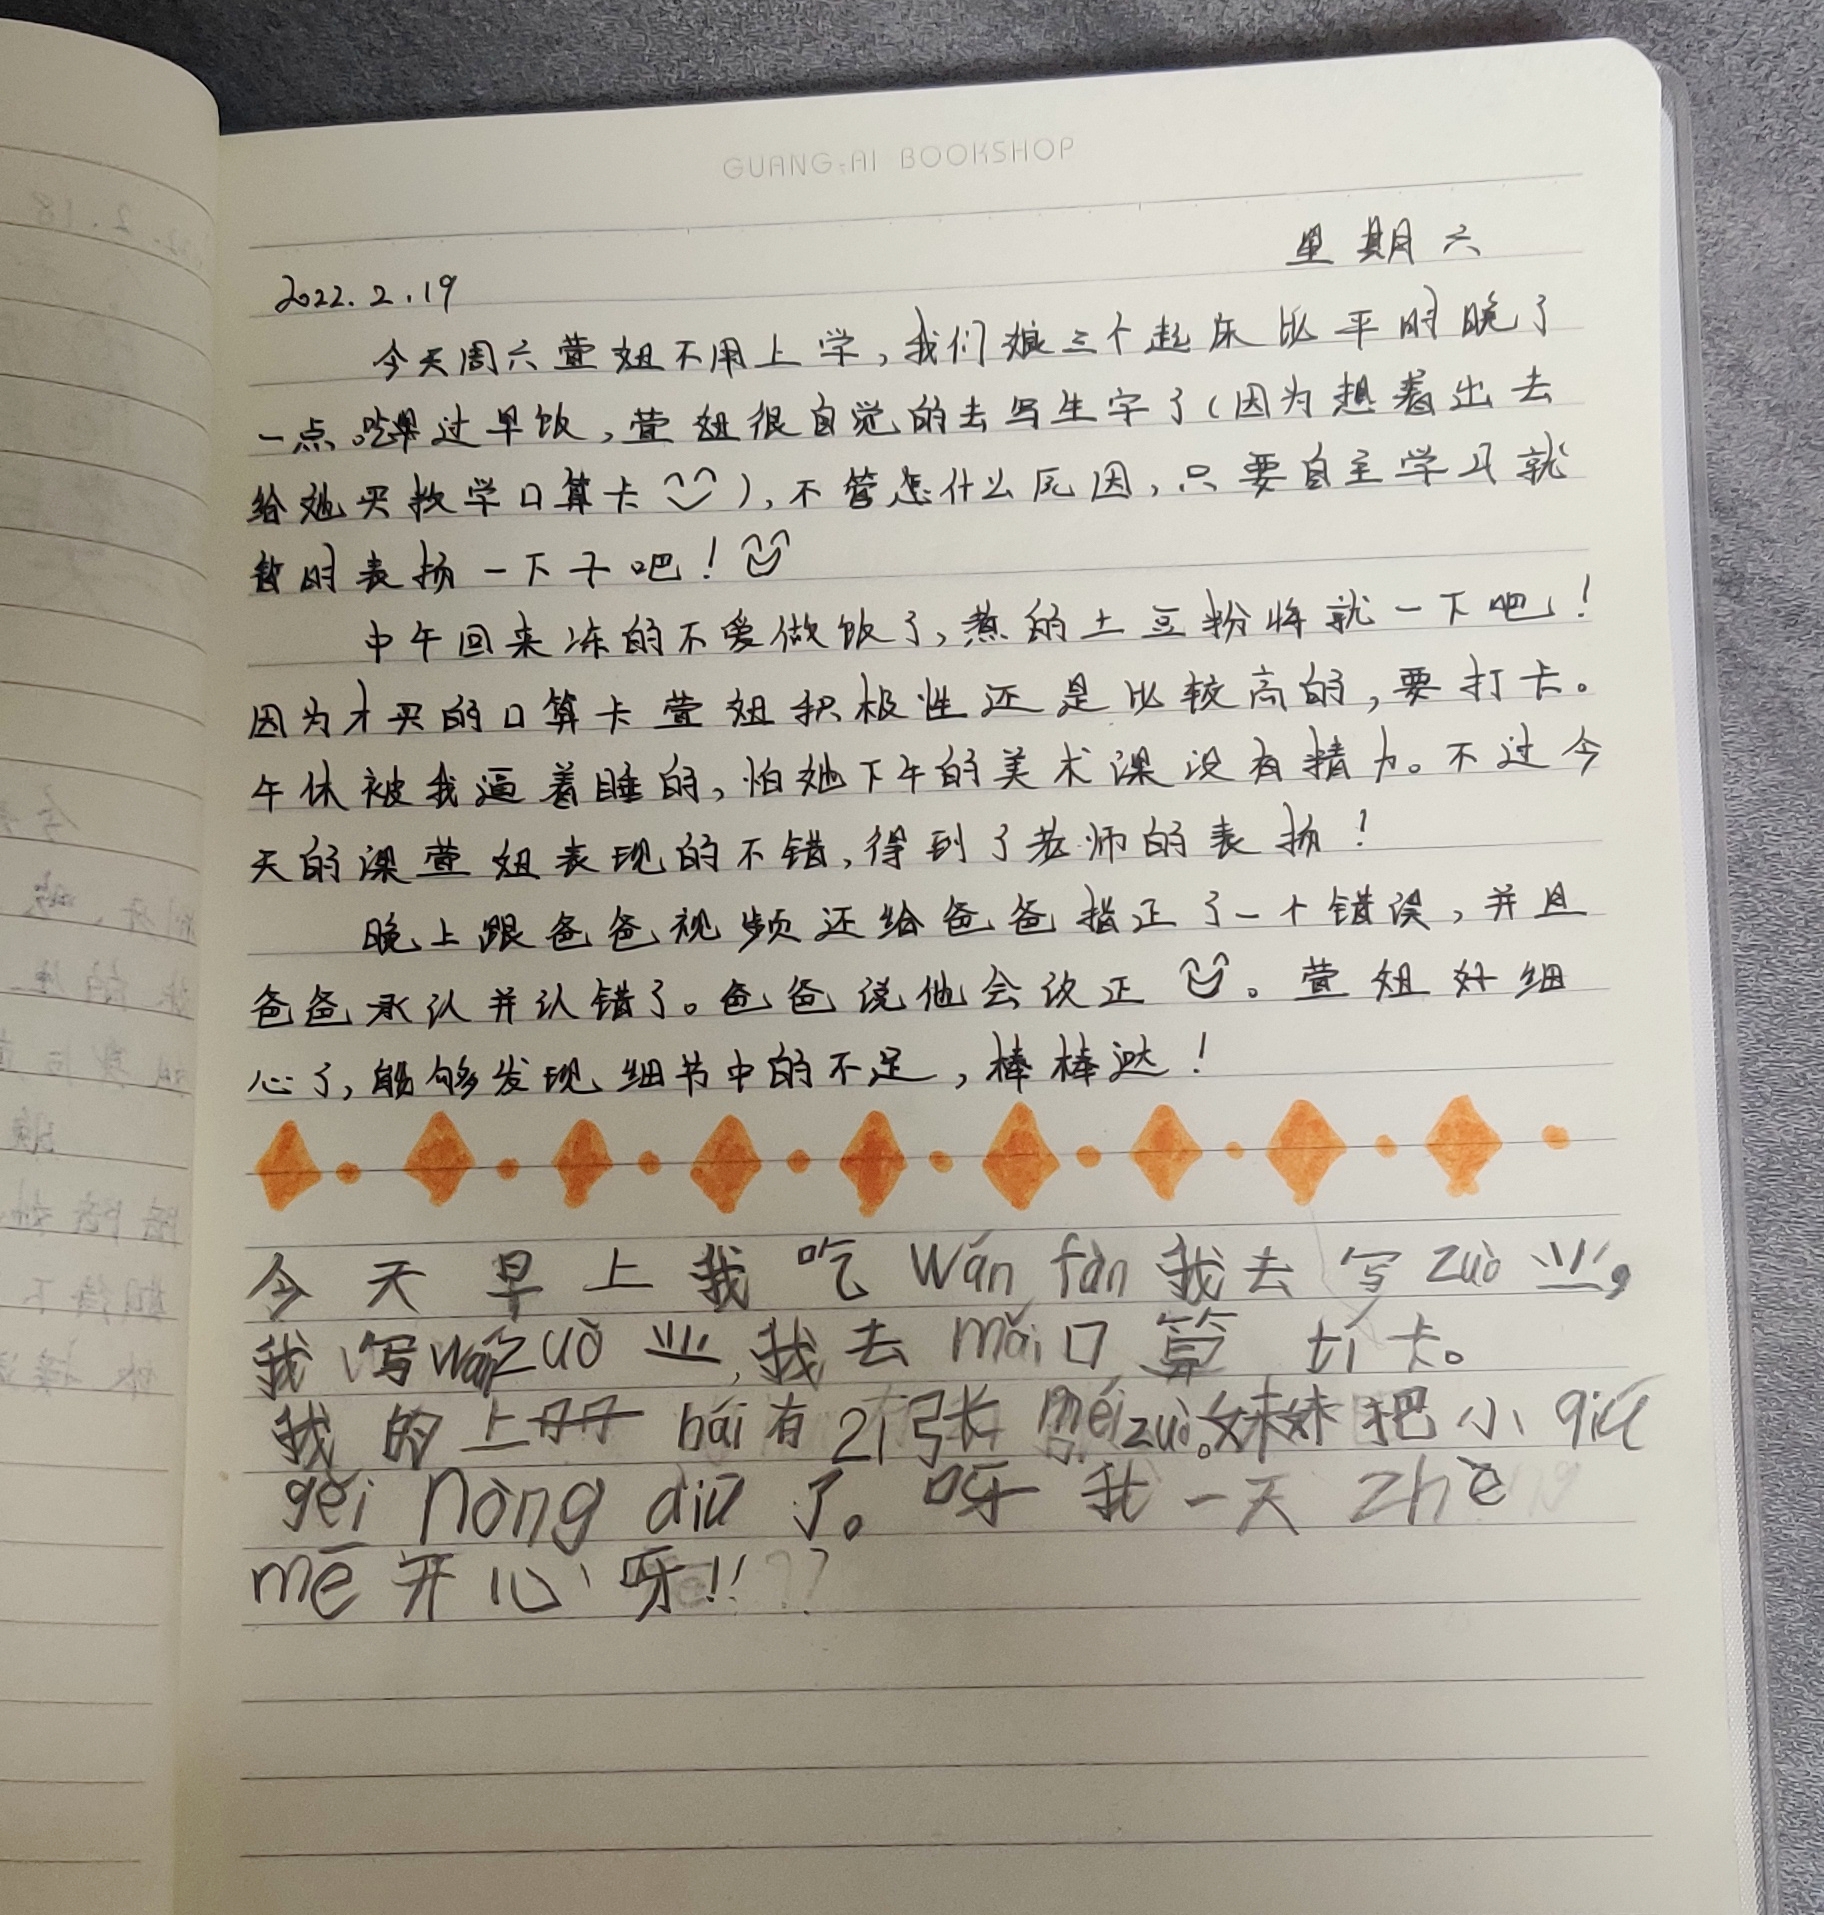 GUANG.AI BOOKSHOP
星期六
2022.2.19
今天周六萱妞不用上学,我们娘三个起床比平时晚了
一点。吃过早饭,萱妞很自觉的去写生字了(因为想着出去
给她买数学口算卡),不管怎什么原因,只要自主学习就
暂时表扬一下子吧!
中午回来冻的不爱做饭了,煮的土豆粉将就一下吧!
因为才买的口算卡萱妞积极性还是比较高的,要打卡。
午休被我逼着睡的,怕她下午的美术课没有精力。不过今
天的课萱妞表现的不错,得到了老师的表扬!
晚上跟爸爸视频还给爸爸指正了一个错误,并且
爸爸承认并认错了。爸爸说他会改正。萱妞好细
心了,能够发现细节中的不足,棒棒哒!
今天早上我吃 wán fàn 我去写 zuò 业,
我写 wán zuò 业,我去 mǎi 口算 tí 卡。
我的上册 hái 有 21 张 méi zuò。妹妹把小 qiú
gěi nòng diū 了。呀我一天 zhè
me 开心呀!!